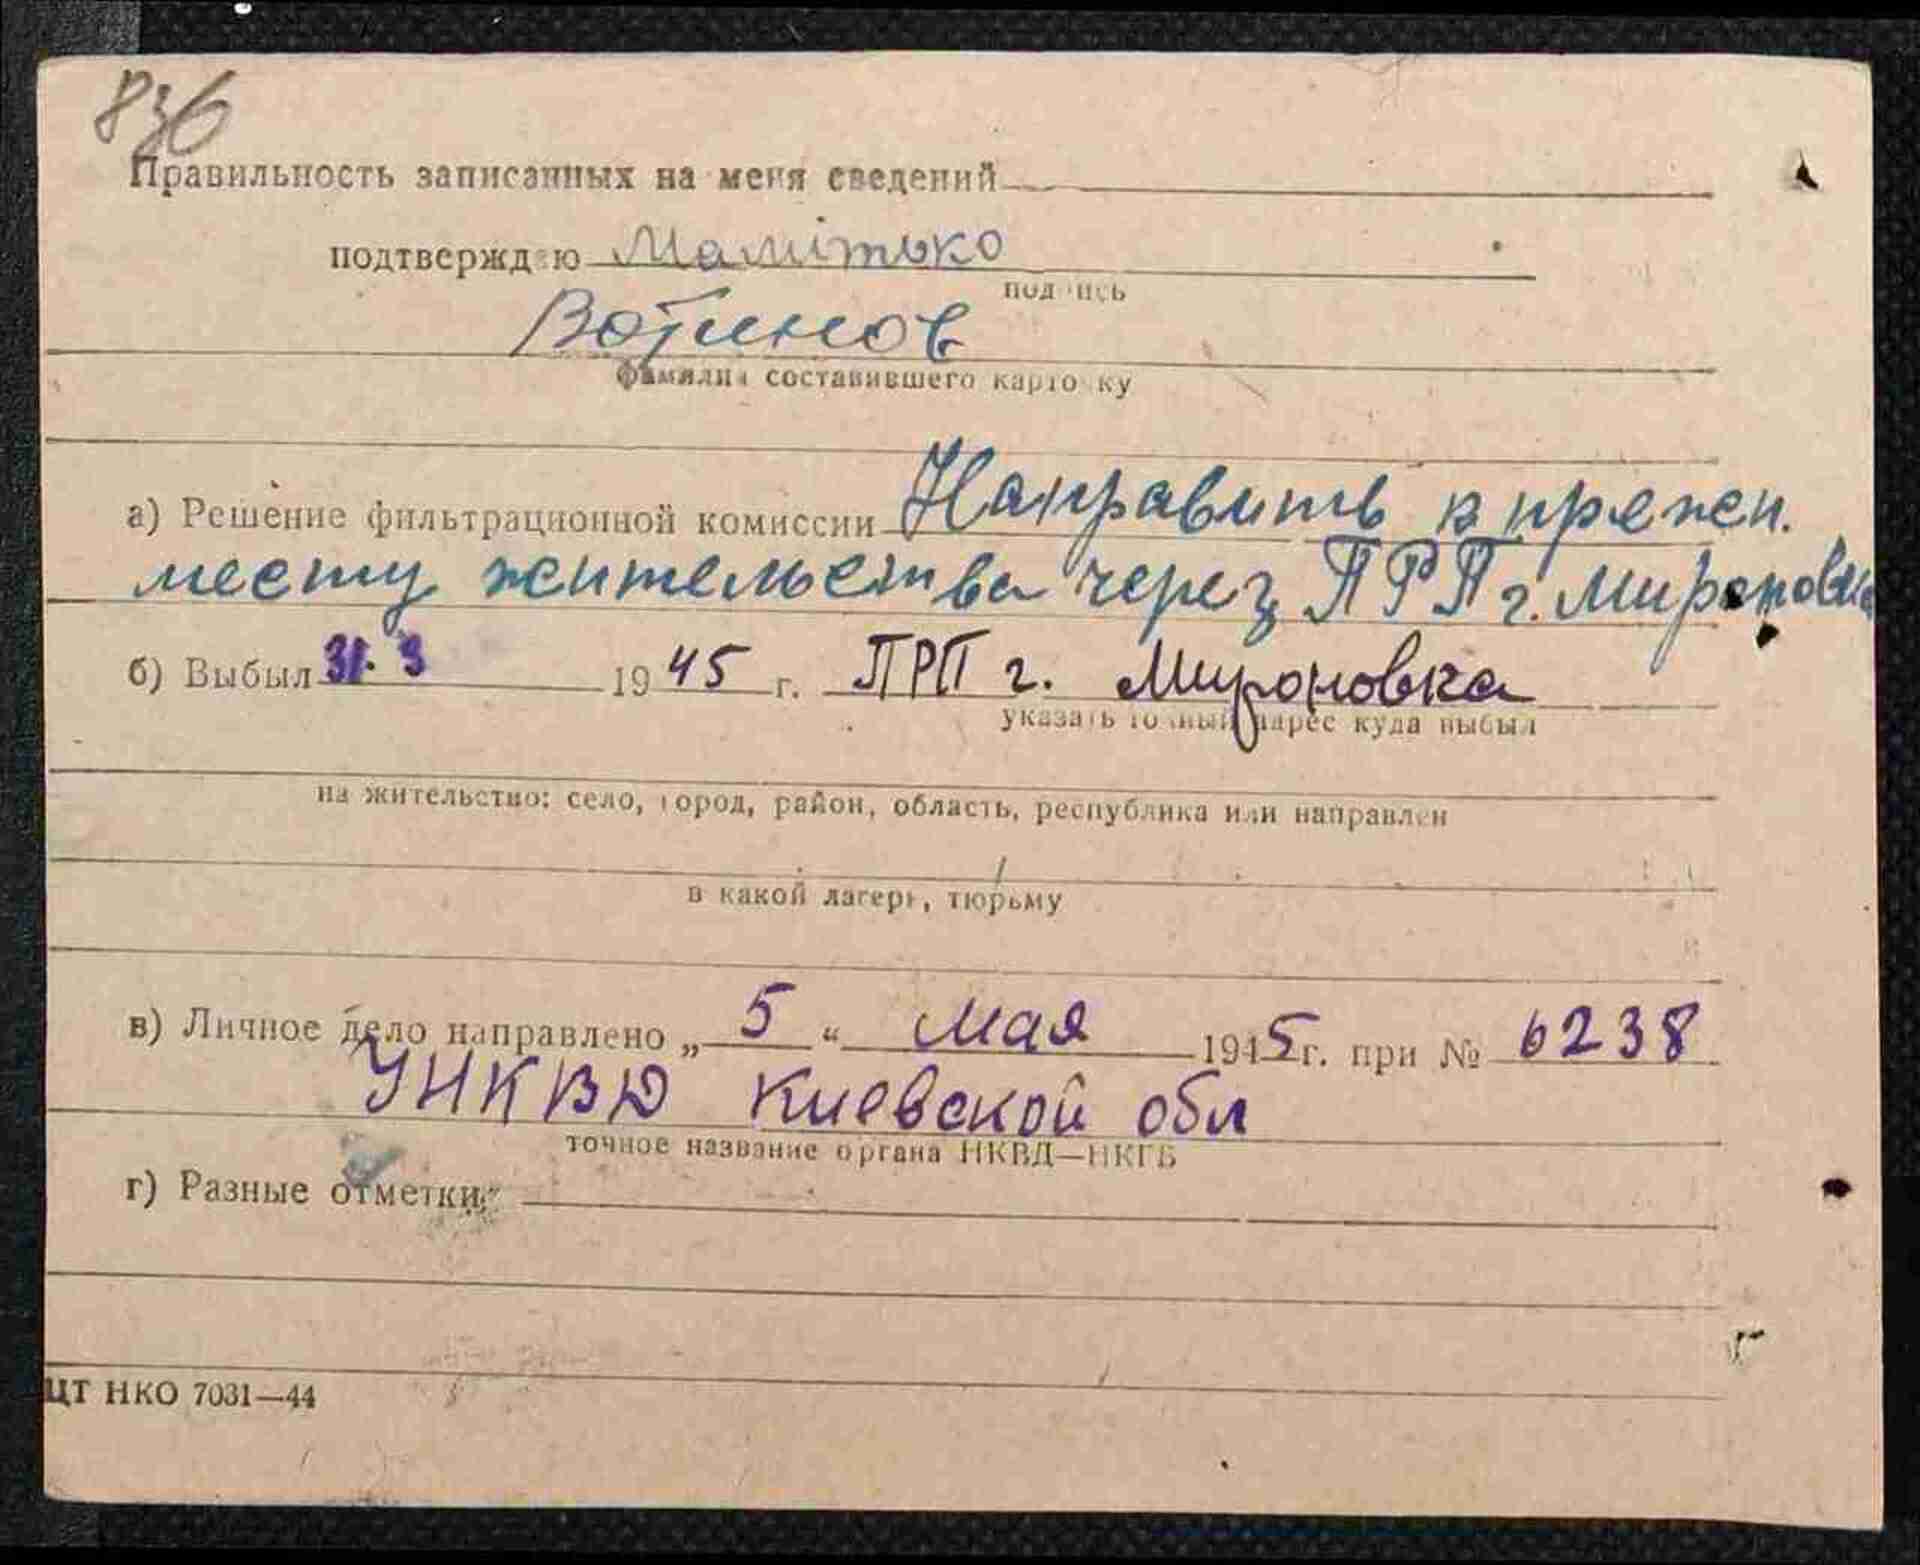 836
Правильность записанных на меня сведений
подтверждаю Мамітько
подпись
Вотинов
фамилия составившего карточку
а) Решение фильтрационной комиссии Направить к прежн.
месту жительства через ПРП г. Мироновка
б) Выбыл 31. 3 1945 г. ПРП г. Мироновка
указать точный адрес куда выбыл
на жительство: село, город, район, область, республика или направлен
в какой лагерь, тюрьму
в) Личное дело направлено „ 5 “ мая 1945 г. при № 6238
УНКВД Киевской обл
точное название органа НКВД—НКГБ
г) Разные отметки:
ЦТ НКО 7031—44